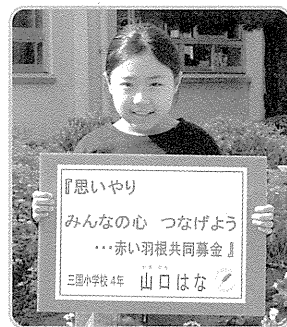 『思いやり
みんなの心 つなげよう
…赤い羽根共同募金』
三国小学校4年 山口はな